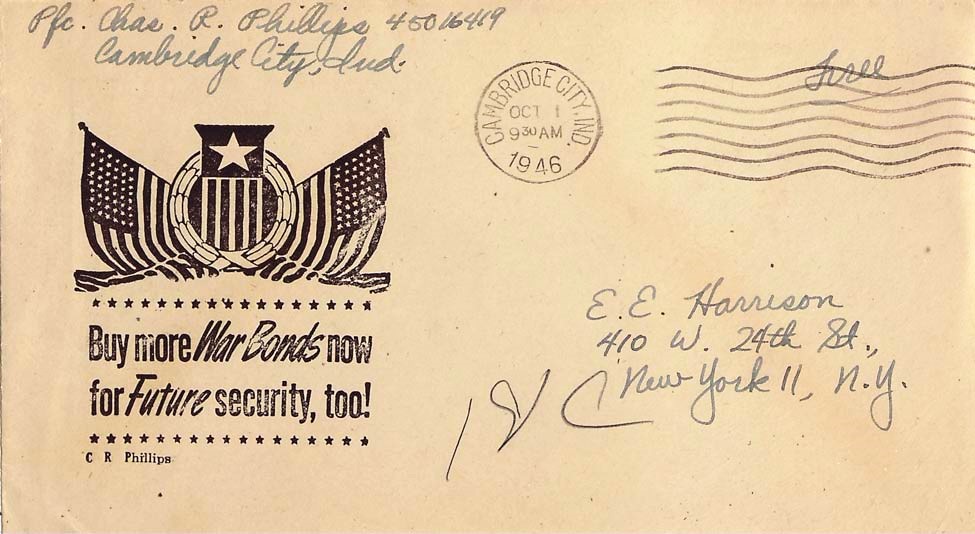 Pfc. Chas. R. Phillips 45016419
Cambridge City, Ind.
Free
CAMBRIDGE CITY, IND.
OCT 1
9 30 AM
1946
Buy more War Bonds now
for Future security, too!
C R Phillips
E. E. Harrison
410 W. 24th St.,
New York 11, N.Y.